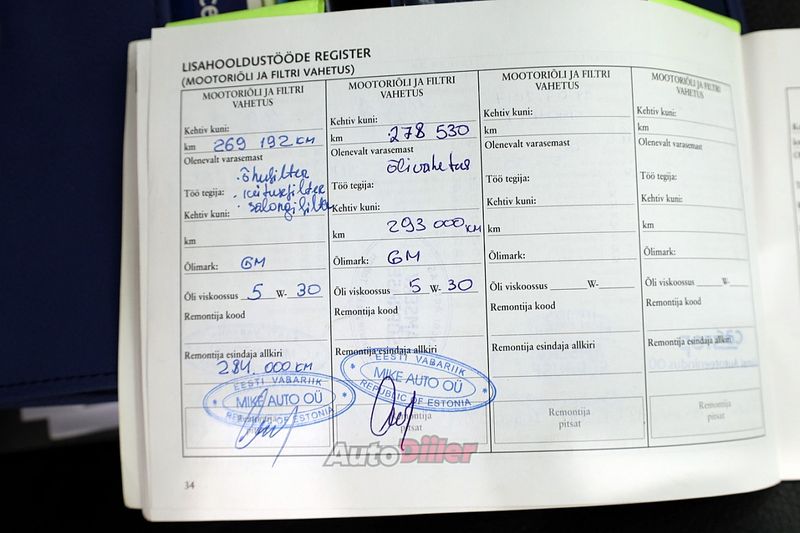 LISAHOOLDUSTÖÖDE REGISTER
(MOOTORIÕLI JA FILTRI VAHETUS)
MOOTORIÕLI JA FILTRI
VAHETUS
Kehtiv kuni:
km 269 192 KM
Olenevalt varasemast
·õhufilter
Töö tegija: ·kütusefilter
Kehtiv kuni: ·salongifilter
km
Õlimark: GM
Õli viskoossus 5 W- 30
Remontija kood
Remontija esindaja allkiri
284.000 KM
EESTI VABARIIK
MIKE AUTO OÜ
REPUBLIC OF ESTONIA
MOOTORIÕLI JA FILTRI
VAHETUS
Kehtiv kuni:
km 278 530
Olenevalt varasemast
õlivahetus
Töö tegija:
Kehtiv kuni:
km 293 000 KM
Õlimark: GM
Õli viskoossus 5 W- 30
Remontija kood
Remontija esindaja allkiri
EESTI VABARIIK
MIKE AUTO OÜ
REPUBLIC OF ESTONIA
Remontija
pitsat
MOOTORIÕLI JA FILTRI
VAHETUS
Kehtiv kuni:
km
Olenevalt varasemast
Töö tegija:
Kehtiv kuni:
km
Õlimark:
Õli viskoossus W-
Remontija kood
Remontija esindaja allkiri
Remontija
pitsat
MOOTORIÕLI JA FILTRI
VAHETUS
Kehtiv kuni:
km
Olenevalt varasemast
Töö tegija:
Kehtiv kuni:
km
Õlimark:
Õli viskoossus W-
Remontija kood
Remontija esindaja allkiri
Remontija
pitsat
34
AutoDiiler